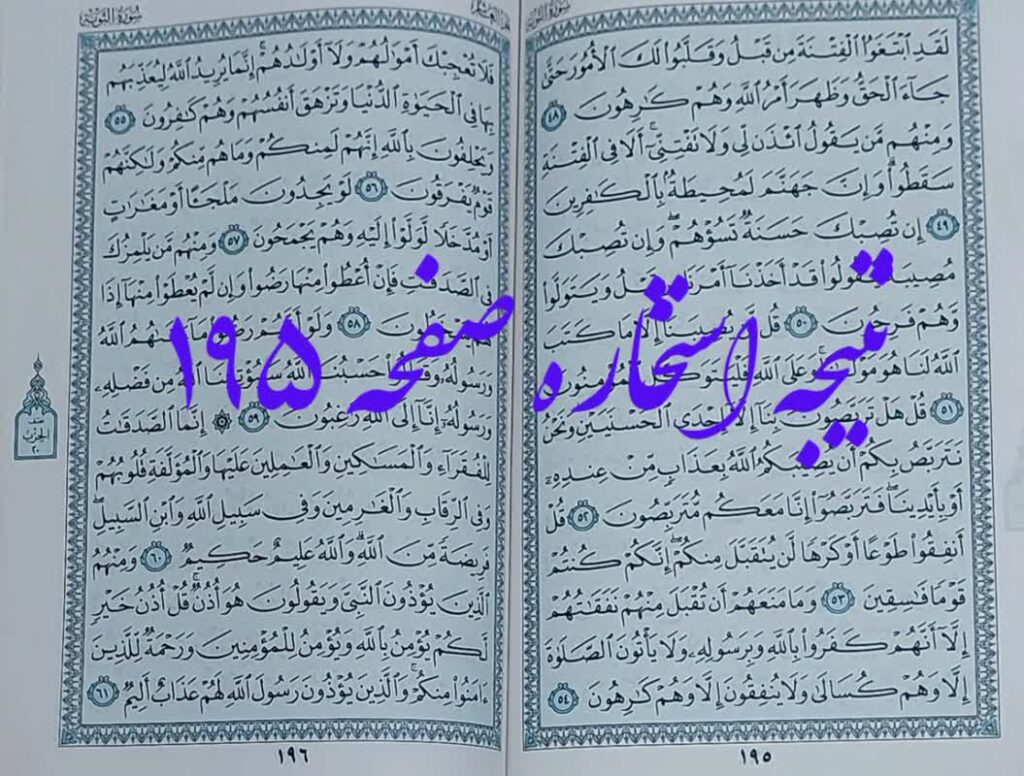 سُورَةُ التَّوْبَةِ
لَقَدِ ٱبْتَغَوُا۟ ٱلْفِتْنَةَ مِن قَبْلُ وَقَلَّبُوا۟ لَكَ ٱلْأُمُورَ حَتَّىٰ
جَآءَ ٱلْحَقُّ وَظَهَرَ أَمْرُ ٱللَّهِ وَهُمْ كَٰرِهُونَ ٤٨
وَمِنْهُم مَّن يَقُولُ ٱئْذَن لِّى وَلَا تَفْتِنِّىٓ ۚ أَلَا فِى ٱلْفِتْنَةِ
سَقَطُوا۟ ۗ وَإِنَّ جَهَنَّمَ لَمُحِيطَةٌۢ بِٱلْكَٰفِرِينَ
٤٩ إِن تُصِبْكَ حَسَنَةٌ تَسُؤْهُمْ ۖ وَإِن تُصِبْكَ
مُصِيبَةٌ يَقُولُوا۟ قَدْ أَخَذْنَآ أَمْرَنَا مِن قَبْلُ وَيَتَوَلَّوا۟
وَّهُمْ فَرِحُونَ ٥٠ قُل لَّن يُصِيبَنَآ إِلَّا مَا كَتَبَ
ٱللَّهُ لَنَا هُوَ مَوْلَىٰنَا ۚ وَعَلَى ٱللَّهِ فَلْيَتَوَكَّلِ ٱلْمُؤْمِنُونَ
٥١ قُلْ هَلْ تَرَبَّصُونَ بِنَآ إِلَّآ إِحْدَى ٱلْحُسْنَيَيْنِ ۖ وَنَحْنُ
نَتَرَبَّصُ بِكُمْ أَن يُصِيبَكُمُ ٱللَّهُ بِعَذَابٍ مِّنْ عِندِهِۦٓ
أَوْ بِأَيْدِينَا ۖ فَتَرَبَّصُوٓا۟ إِنَّا مَعَكُم مُّتَرَبِّصُونَ ٥٢ قُلْ
أَنفِقُوا۟ طَوْعًا أَوْ كَرْهًا لَّن يُتَقَبَّلَ مِنكُمْ ۖ إِنَّكُمْ كُنتُمْ
قَوْمًا فَٰسِقِينَ ٥٣ وَمَا مَنَعَهُمْ أَن تُقْبَلَ مِنْهُمْ نَفَقَٰتُهُمْ
إِلَّآ أَنَّهُمْ كَفَرُوا۟ بِٱللَّهِ وَبِرَسُولِهِۦ وَلَا يَأْتُونَ ٱلصَّلَوٰةَ
إِلَّا وَهُمْ كُسَالَىٰ وَلَا يُنفِقُونَ إِلَّا وَهُمْ كَٰرِهُونَ ٥٤
١٩٥
سُورَةُ التَّوْبَةِ
فَلَا تُعْجِبْكَ أَمْوَٰلُهُمْ وَلَآ أَوْلَٰدُهُمْ ۚ إِنَّمَا يُرِيدُ ٱللَّهُ لِيُعَذِّبَهُم
بِهَا فِى ٱلْحَيَوٰةِ ٱلدُّنْيَا وَتَزْهَقَ أَنفُسُهُمْ وَهُمْ كَٰفِرُونَ ٥٥
وَيَحْلِفُونَ بِٱللَّهِ إِنَّهُمْ لَمِنكُمْ وَمَا هُم مِّنكُمْ وَلَٰكِنَّهُمْ
قَوْمٌ يَفْرَقُونَ ٥٦ لَوْ يَجِدُونَ مَلْجَـًٔا أَوْ مَغَٰرَٰتٍ
أَوْ مُدَّخَلًا لَّوَلَّوْا۟ إِلَيْهِ وَهُمْ يَجْمَحُونَ ٥٧ وَمِنْهُم مَّن يَلْمِزُكَ
فِى ٱلصَّدَقَٰتِ فَإِنْ أُعْطُوا۟ مِنْهَا رَضُوا۟ وَإِن لَّمْ يُعْطَوْا۟ مِنْهَآ إِذَا
هُمْ يَسْخَطُونَ ٥٨ وَلَوْ أَنَّهُمْ رَضُوا۟ مَآ ءَاتَىٰهُمُ ٱللَّهُ
وَرَسُولُهُۥ وَقَالُوا۟ حَسْبُنَا ٱللَّهُ سَيُؤْتِينَا ٱللَّهُ مِن فَضْلِهِۦ
وَرَسُولُهُۥٓ إِنَّآ إِلَى ٱللَّهِ رَٰغِبُونَ ٥٩ ۞ إِنَّمَا ٱلصَّدَقَٰتُ
لِلْفُقَرَآءِ وَٱلْمَسَٰكِينِ وَٱلْعَٰمِلِينَ عَلَيْهَا وَٱلْمُؤَلَّفَةِ قُلُوبُهُمْ
وَفِى ٱلرِّقَابِ وَٱلْغَٰرِمِينَ وَفِى سَبِيلِ ٱللَّهِ وَٱبْنِ ٱلسَّبِيلِ ۖ
فَرِيضَةً مِّنَ ٱللَّهِ ۗ وَٱللَّهُ عَلِيمٌ حَكِيمٌ ٦٠ وَمِنْهُمُ
ٱلَّذِينَ يُؤْذُونَ ٱلنَّبِىَّ وَيَقُولُونَ هُوَ أُذُنٌ ۚ قُلْ أُذُنُ خَيْرٍ
لَّكُمْ يُؤْمِنُ بِٱللَّهِ وَيُؤْمِنُ لِلْمُؤْمِنِينَ وَرَحْمَةٌ لِّلَّذِينَ
ءَامَنُوا۟ مِنكُمْ ۚ وَٱلَّذِينَ يُؤْذُونَ رَسُولَ ٱللَّهِ لَهُمْ عَذَابٌ أَلِيمٌ ٦١
١٩٦
نصف
الحزب
٢٠
نتیجه استخاره صفحه ۱۹۵